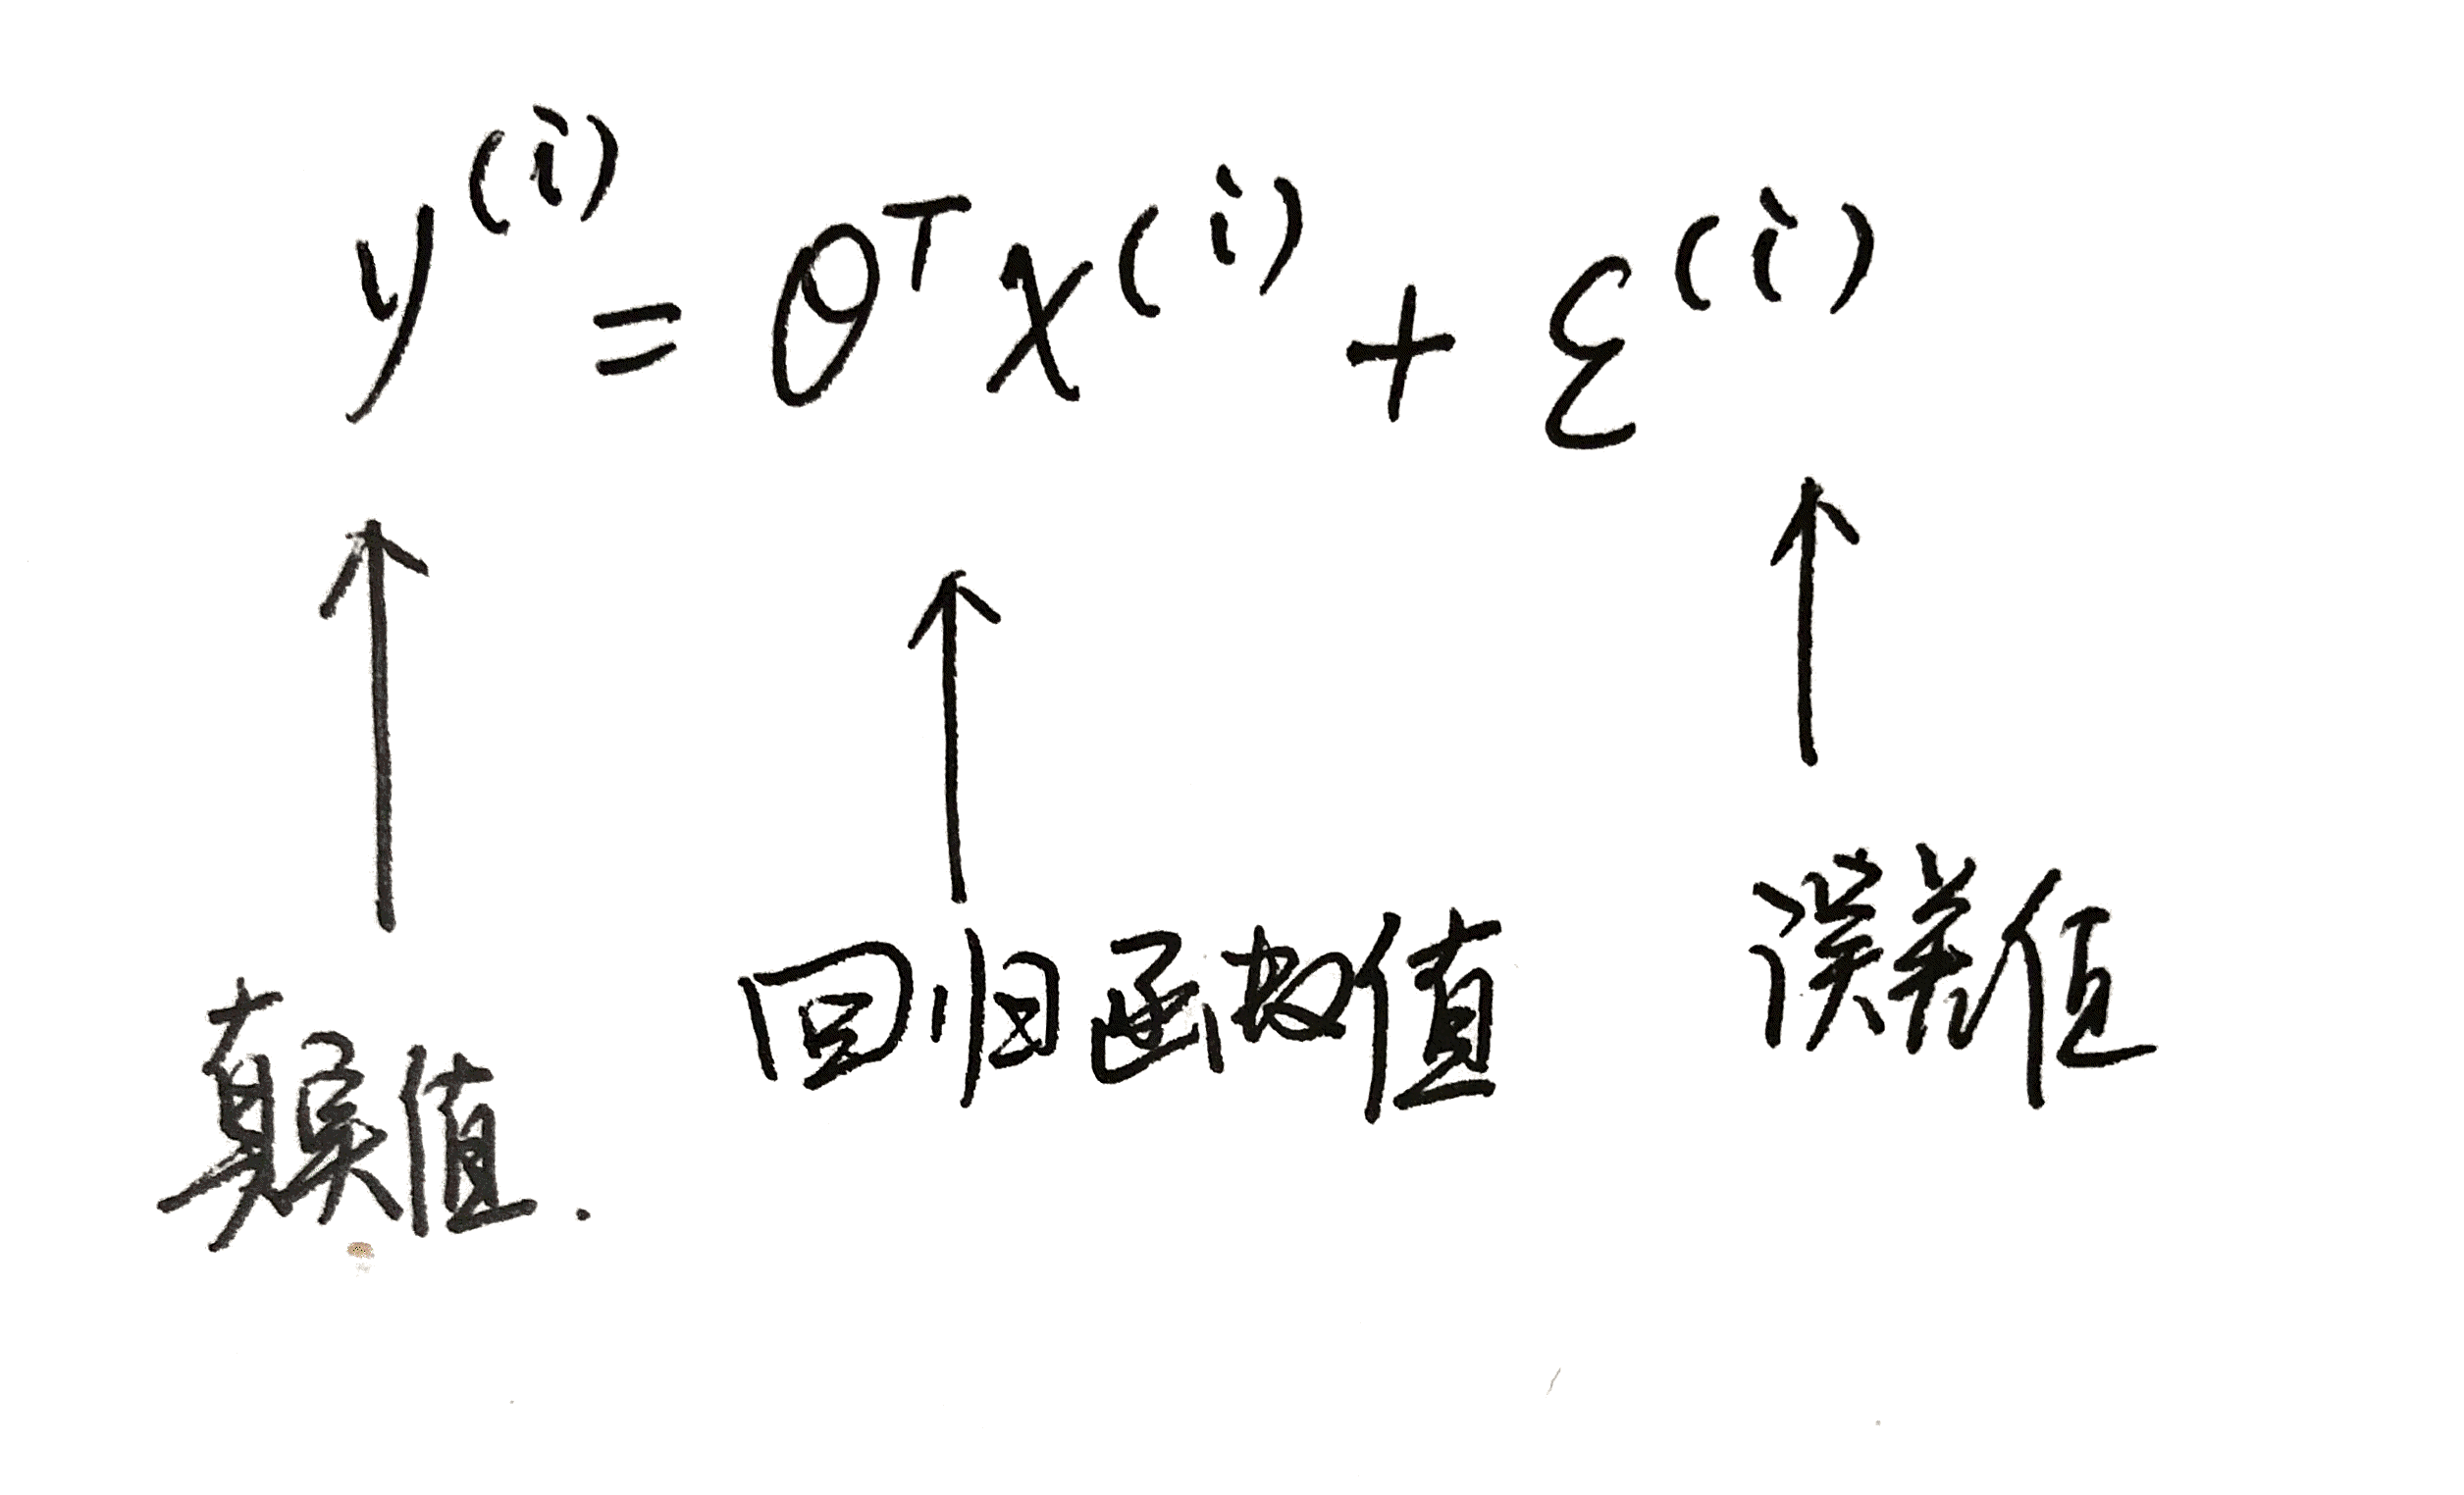 y^(i) = θ^T x^(i) + ε^(i)
真实值. 回归函数值 误差值